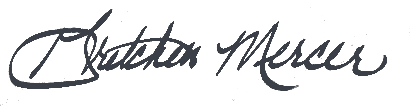 Gretchen Mercer